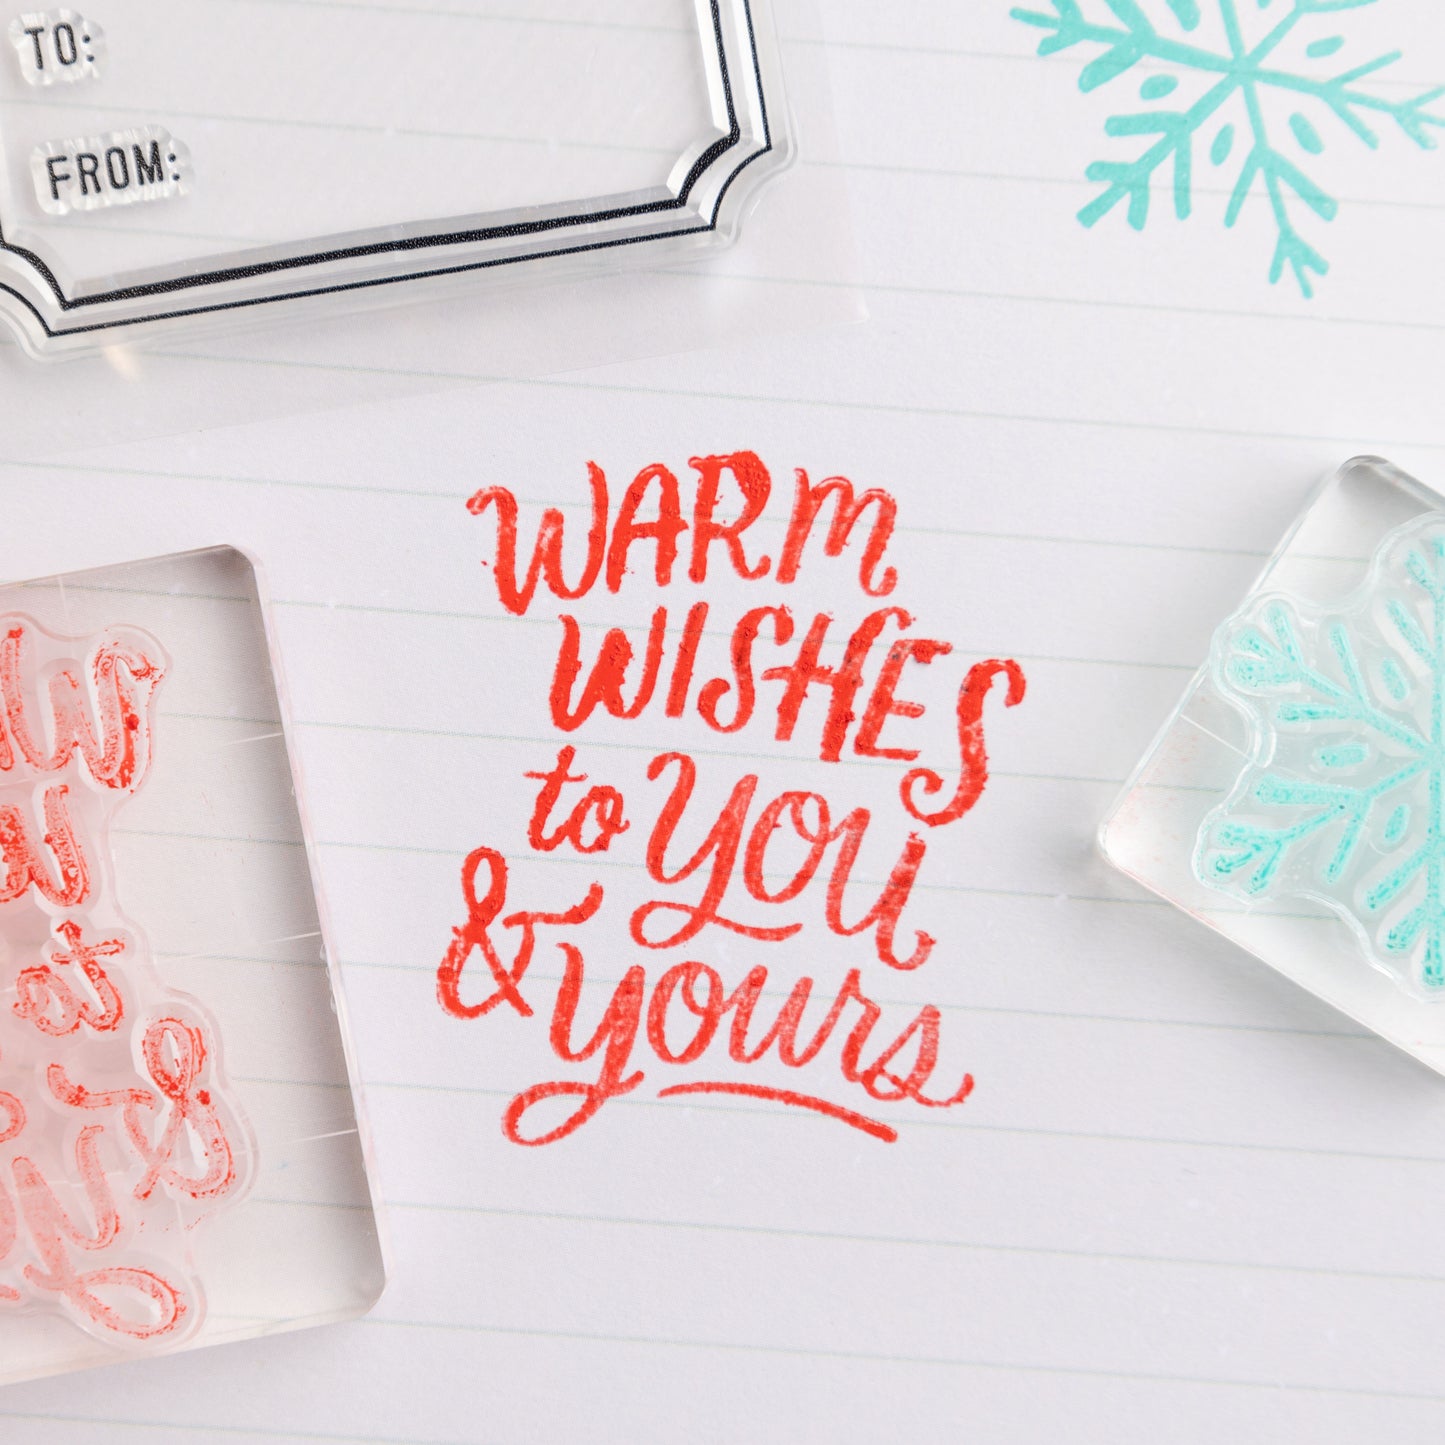 TO:
FROM:
WARM
WISHES
to YOU
& yours